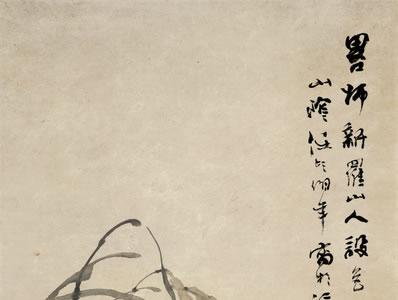 畧師新羅山人設色
山陰任頤伯年寫於